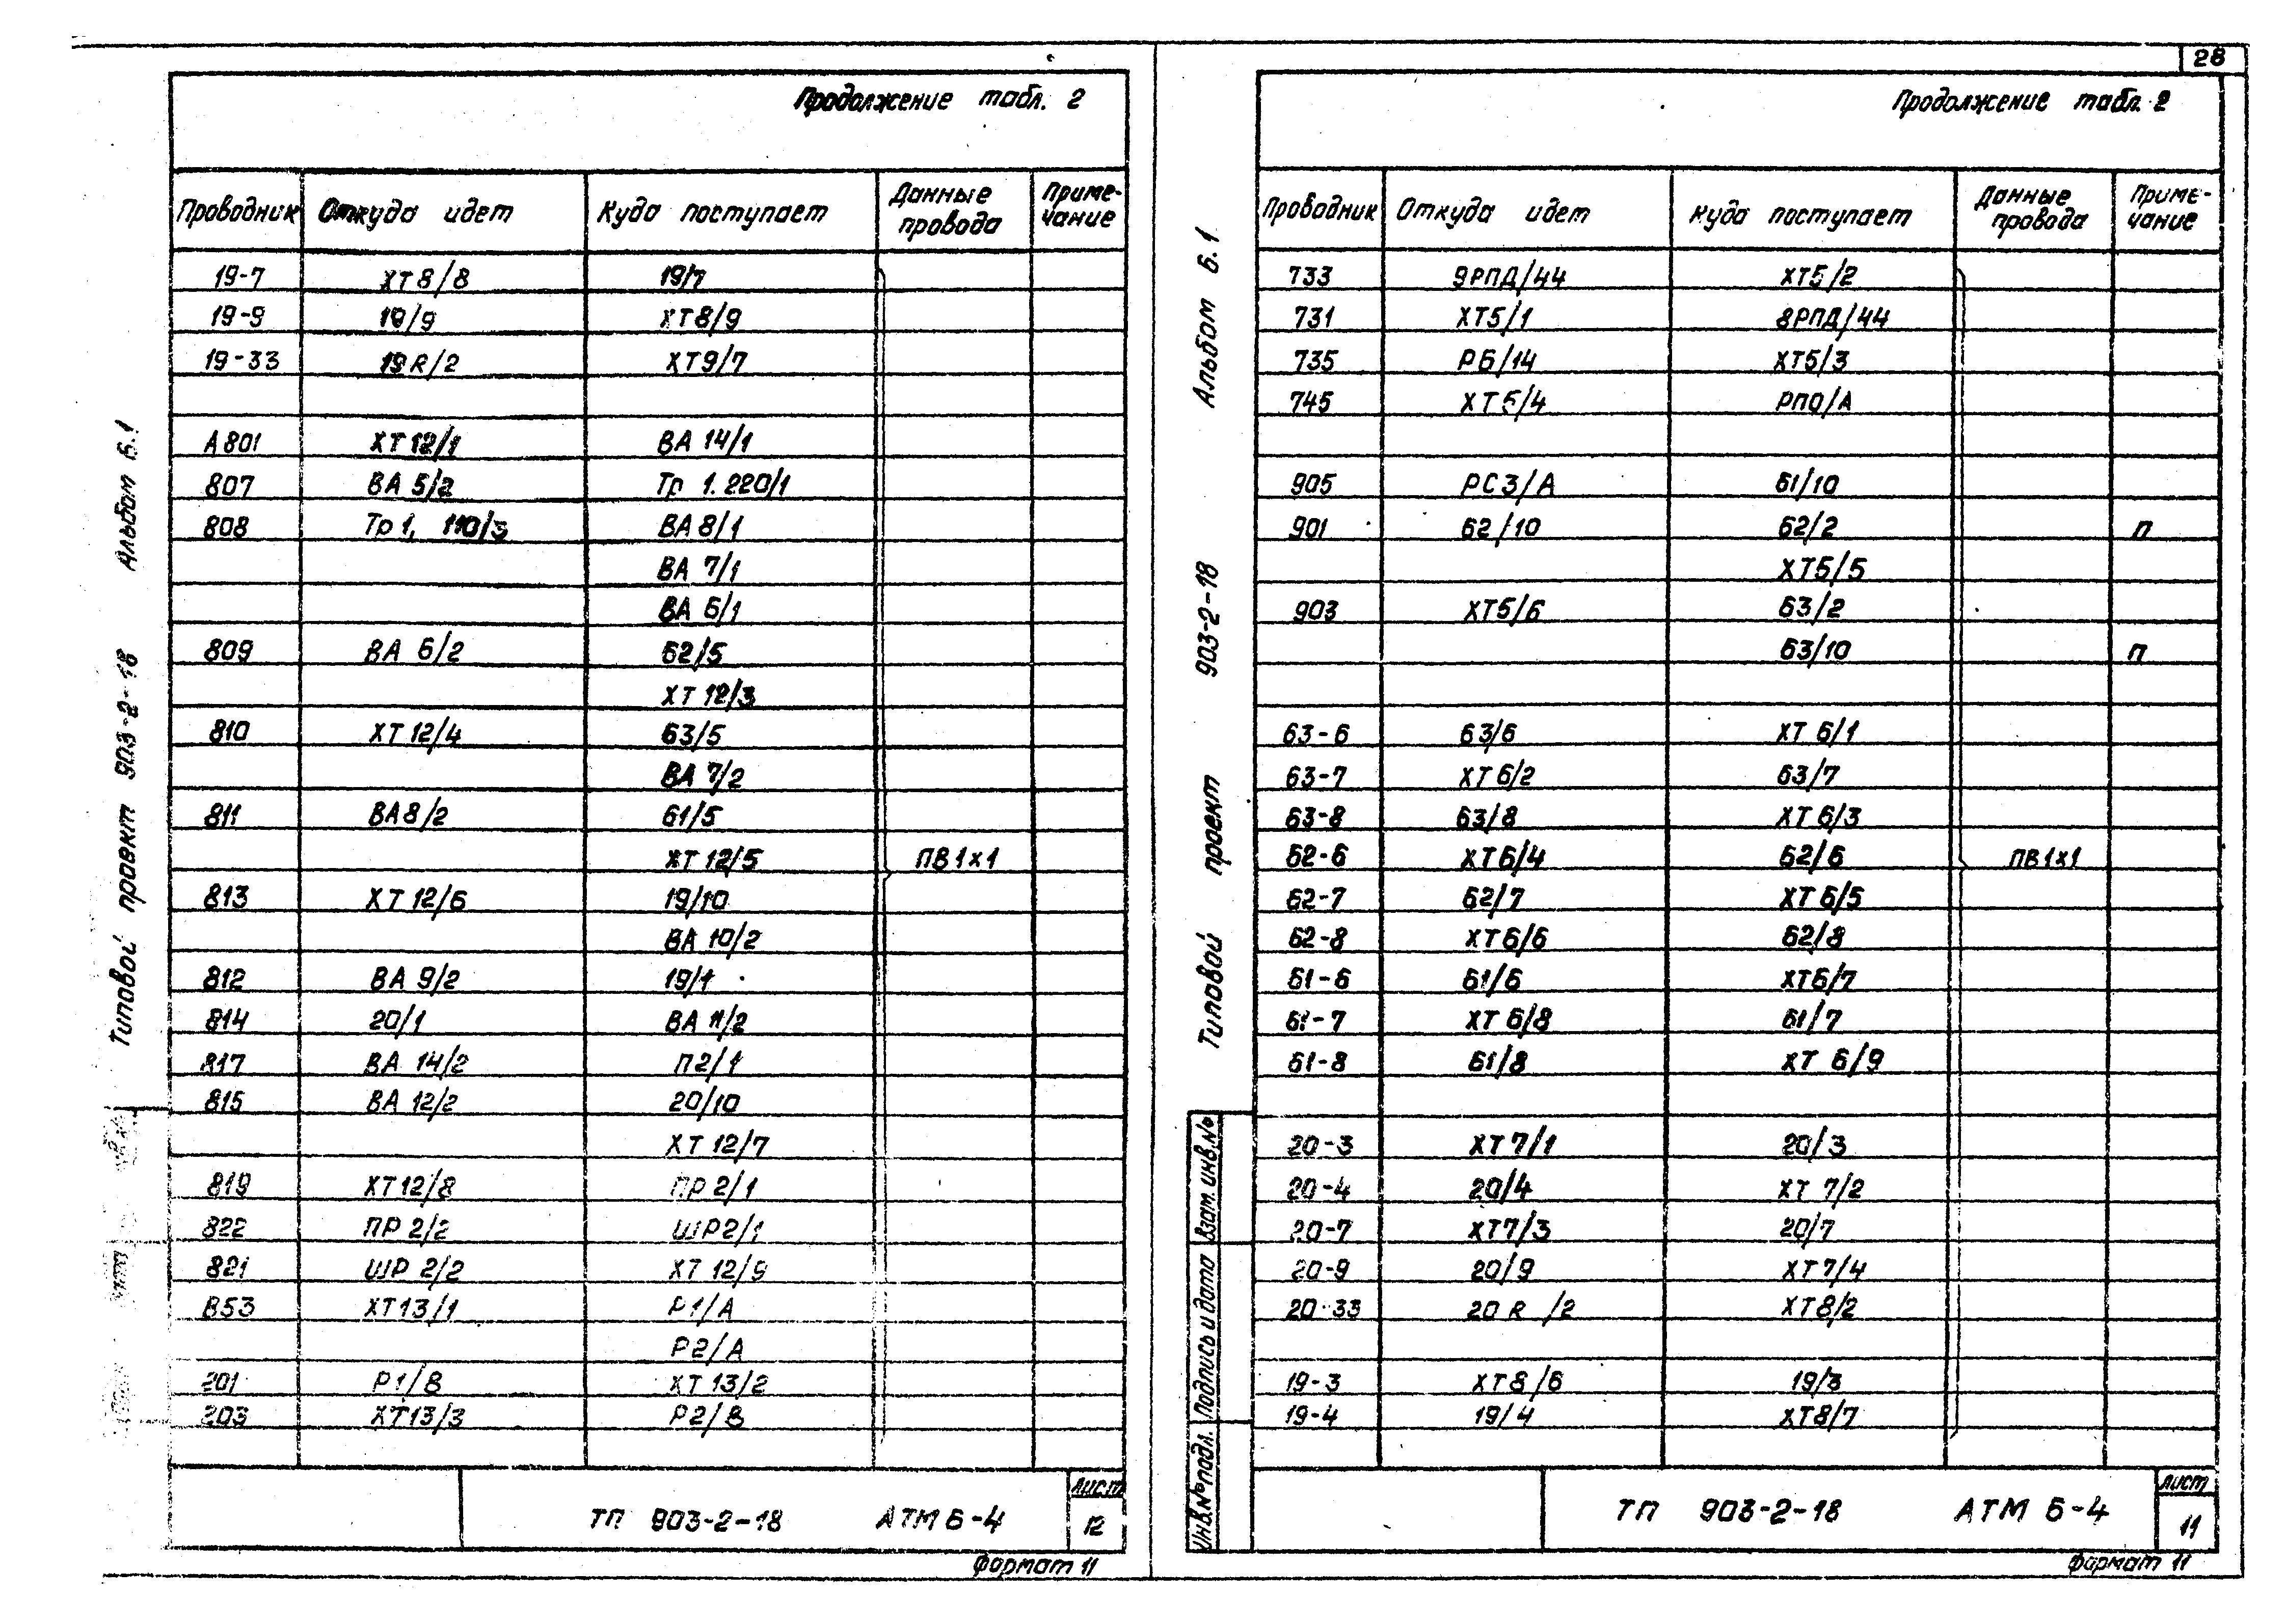 28
Продолжение табл. 2
Проводник Откуда идет Куда поступает Данные провода Приме-чание
19-7 ХТ8/8 19/7
19-9 19/9 ХТ8/9
19-33 19R/2 ХТ9/7
А801 ХТ12/1 ВА 14/1
807 ВА 5/2 Тр 1. 220/1
808 Тр1, 110/3 ВА 8/1
ВА 7/1
ВА 6/1
809 ВА 6/2 62/5
ХТ 12/3
810 ХТ 12/4 63/5
ВА 7/2
811 ВА8/2 61/5
ХТ 12/5 ПВ1х1
813 ХТ 12/6 19/10
ВА 10/2
812 ВА 9/2 19/1
814 20/1 ВА 11/2
817 ВА 14/2 П2/1
815 ВА 12/2 20/10
ХТ 12/7
819 ХТ12/8 ПР 2/1
822 ПР 2/2 ШР2/1
821 ШР 2/2 ХТ 12/9
853 ХТ13/1 Р1/А
Р2/А
201 Р1/В ХТ 13/2
203 ХТ13/3 Р2/В
Типовой проект 903-2-18 Альбом 6.1
ТП 903-2-18 АТМ 6-4
Лист
12
Формат 11
Продолжение табл. 2
Проводник Откуда идет Куда поступает Данные провода Приме-чание
733 9РПД/44 ХТ5/2
731 ХТ5/1 8РПД/44
735 Р6/14 ХТ5/3
745 ХТ5/4 РПО/А
905 РС3/А 61/10
901 62/10 62/2 П
ХТ5/5
903 ХТ5/6 63/2
63/10 П
63-6 63/6 ХТ 6/1
63-7 ХТ6/2 63/7
63-8 63/8 ХТ 6/3
62-6 ХТ6/4 62/6 ПВ1х1
62-7 62/7 ХТ 6/5
62-8 ХТ6/6 62/8
61-6 61/6 ХТ6/7
61-7 ХТ 6/8 61/7
61-8 61/8 ХТ 6/9
20-3 ХТ7/1 20/3
20-4 20/4 ХТ 7/2
20-7 ХТ7/3 20/7
20-9 20/9 ХТ7/4
20-33 20 R /2 ХТ8/2
19-3 ХТ8/6 19/3
19-4 19/4 ХТ8/7
Типовой проект 903-2-18 Альбом 6.1
Инв.№ подл. Подпись и дата Взам. инв.№
ТП 903-2-18 АТМ 6-4
Лист
11
Формат 11